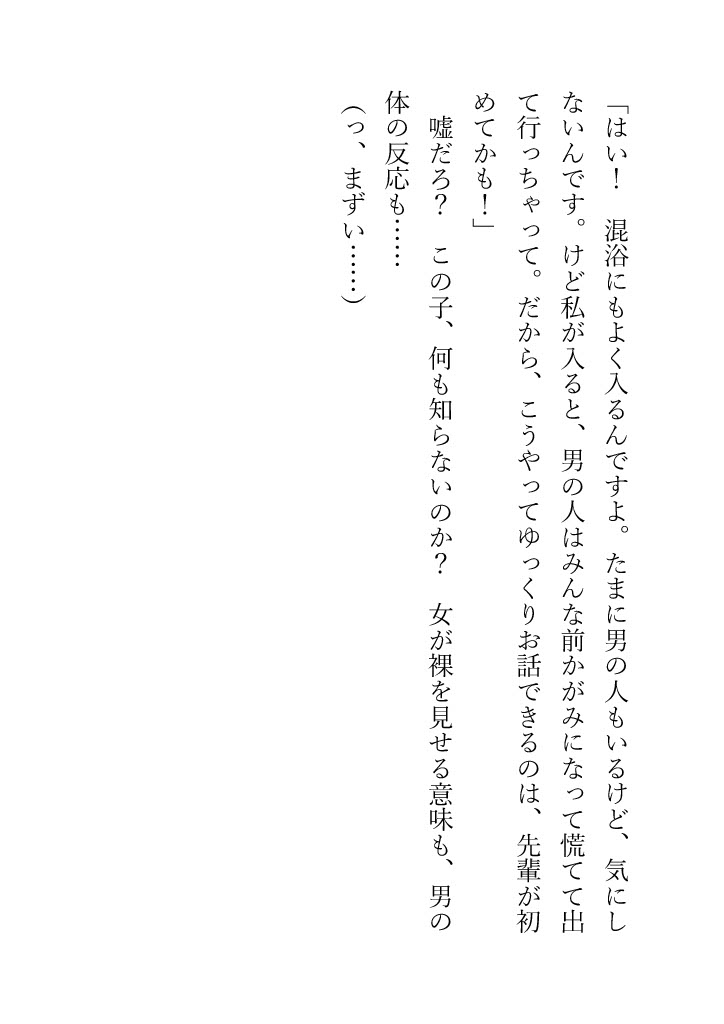 「はい！　混浴にもよく入るんですよ。たまに男の人もいるけど、気にし
ないんです。けど私が入ると、男の人はみんな前かがみになって慌てて出
て行っちゃって。だから、こうやってゆっくりお話できるのは、先輩が初
めてかも！」
　嘘だろ？　この子、何も知らないのか？　女が裸を見せる意味も、男の
体の反応も……
（っ、まずい……）